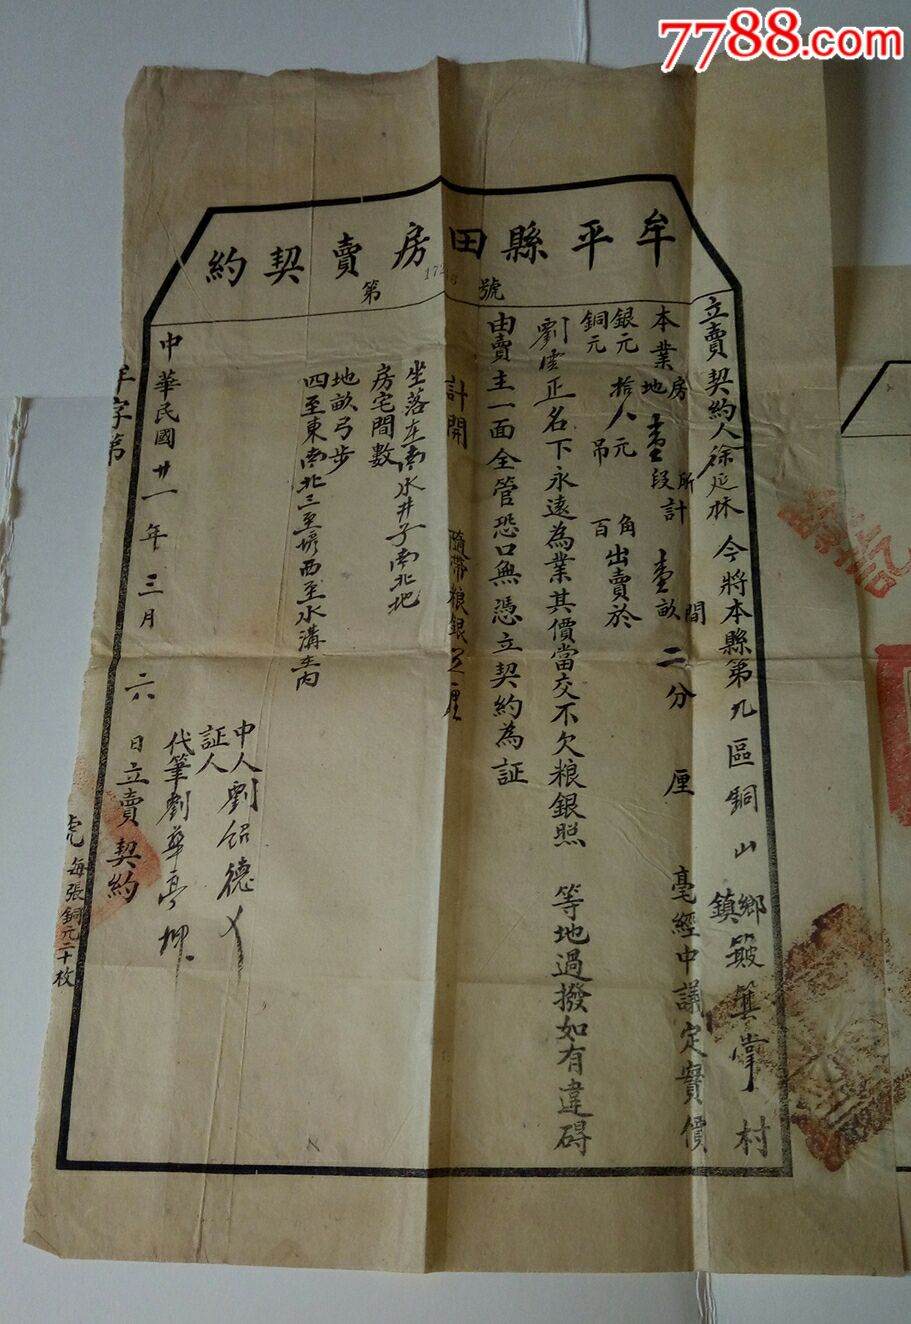 7788.com
牟平縣田房賣契約
第172號
立賣契約人徐延林今將本縣第九區銅山鄉鎮簸箕掌村
本業房地壹所段計壹間畝二分 厘 毫經中議定實價
銀元銅元拾八元吊 角百出賣於
劉雲正名下永遠為業其價當交不欠粮銀照 等地過撥如有違碍
由賣主一面全管恐口無憑立契約為証
計開 隨帶粮銀 厘
坐落在南水井子南北地
房宅間數
地畝弓步
四至東南北三至塄西至水溝 内
中人劉紹德
証人
代筆劉華亭押
中華民國廿一年三月 六 日立賣契約
牟字第 號 每張銅元二十枚